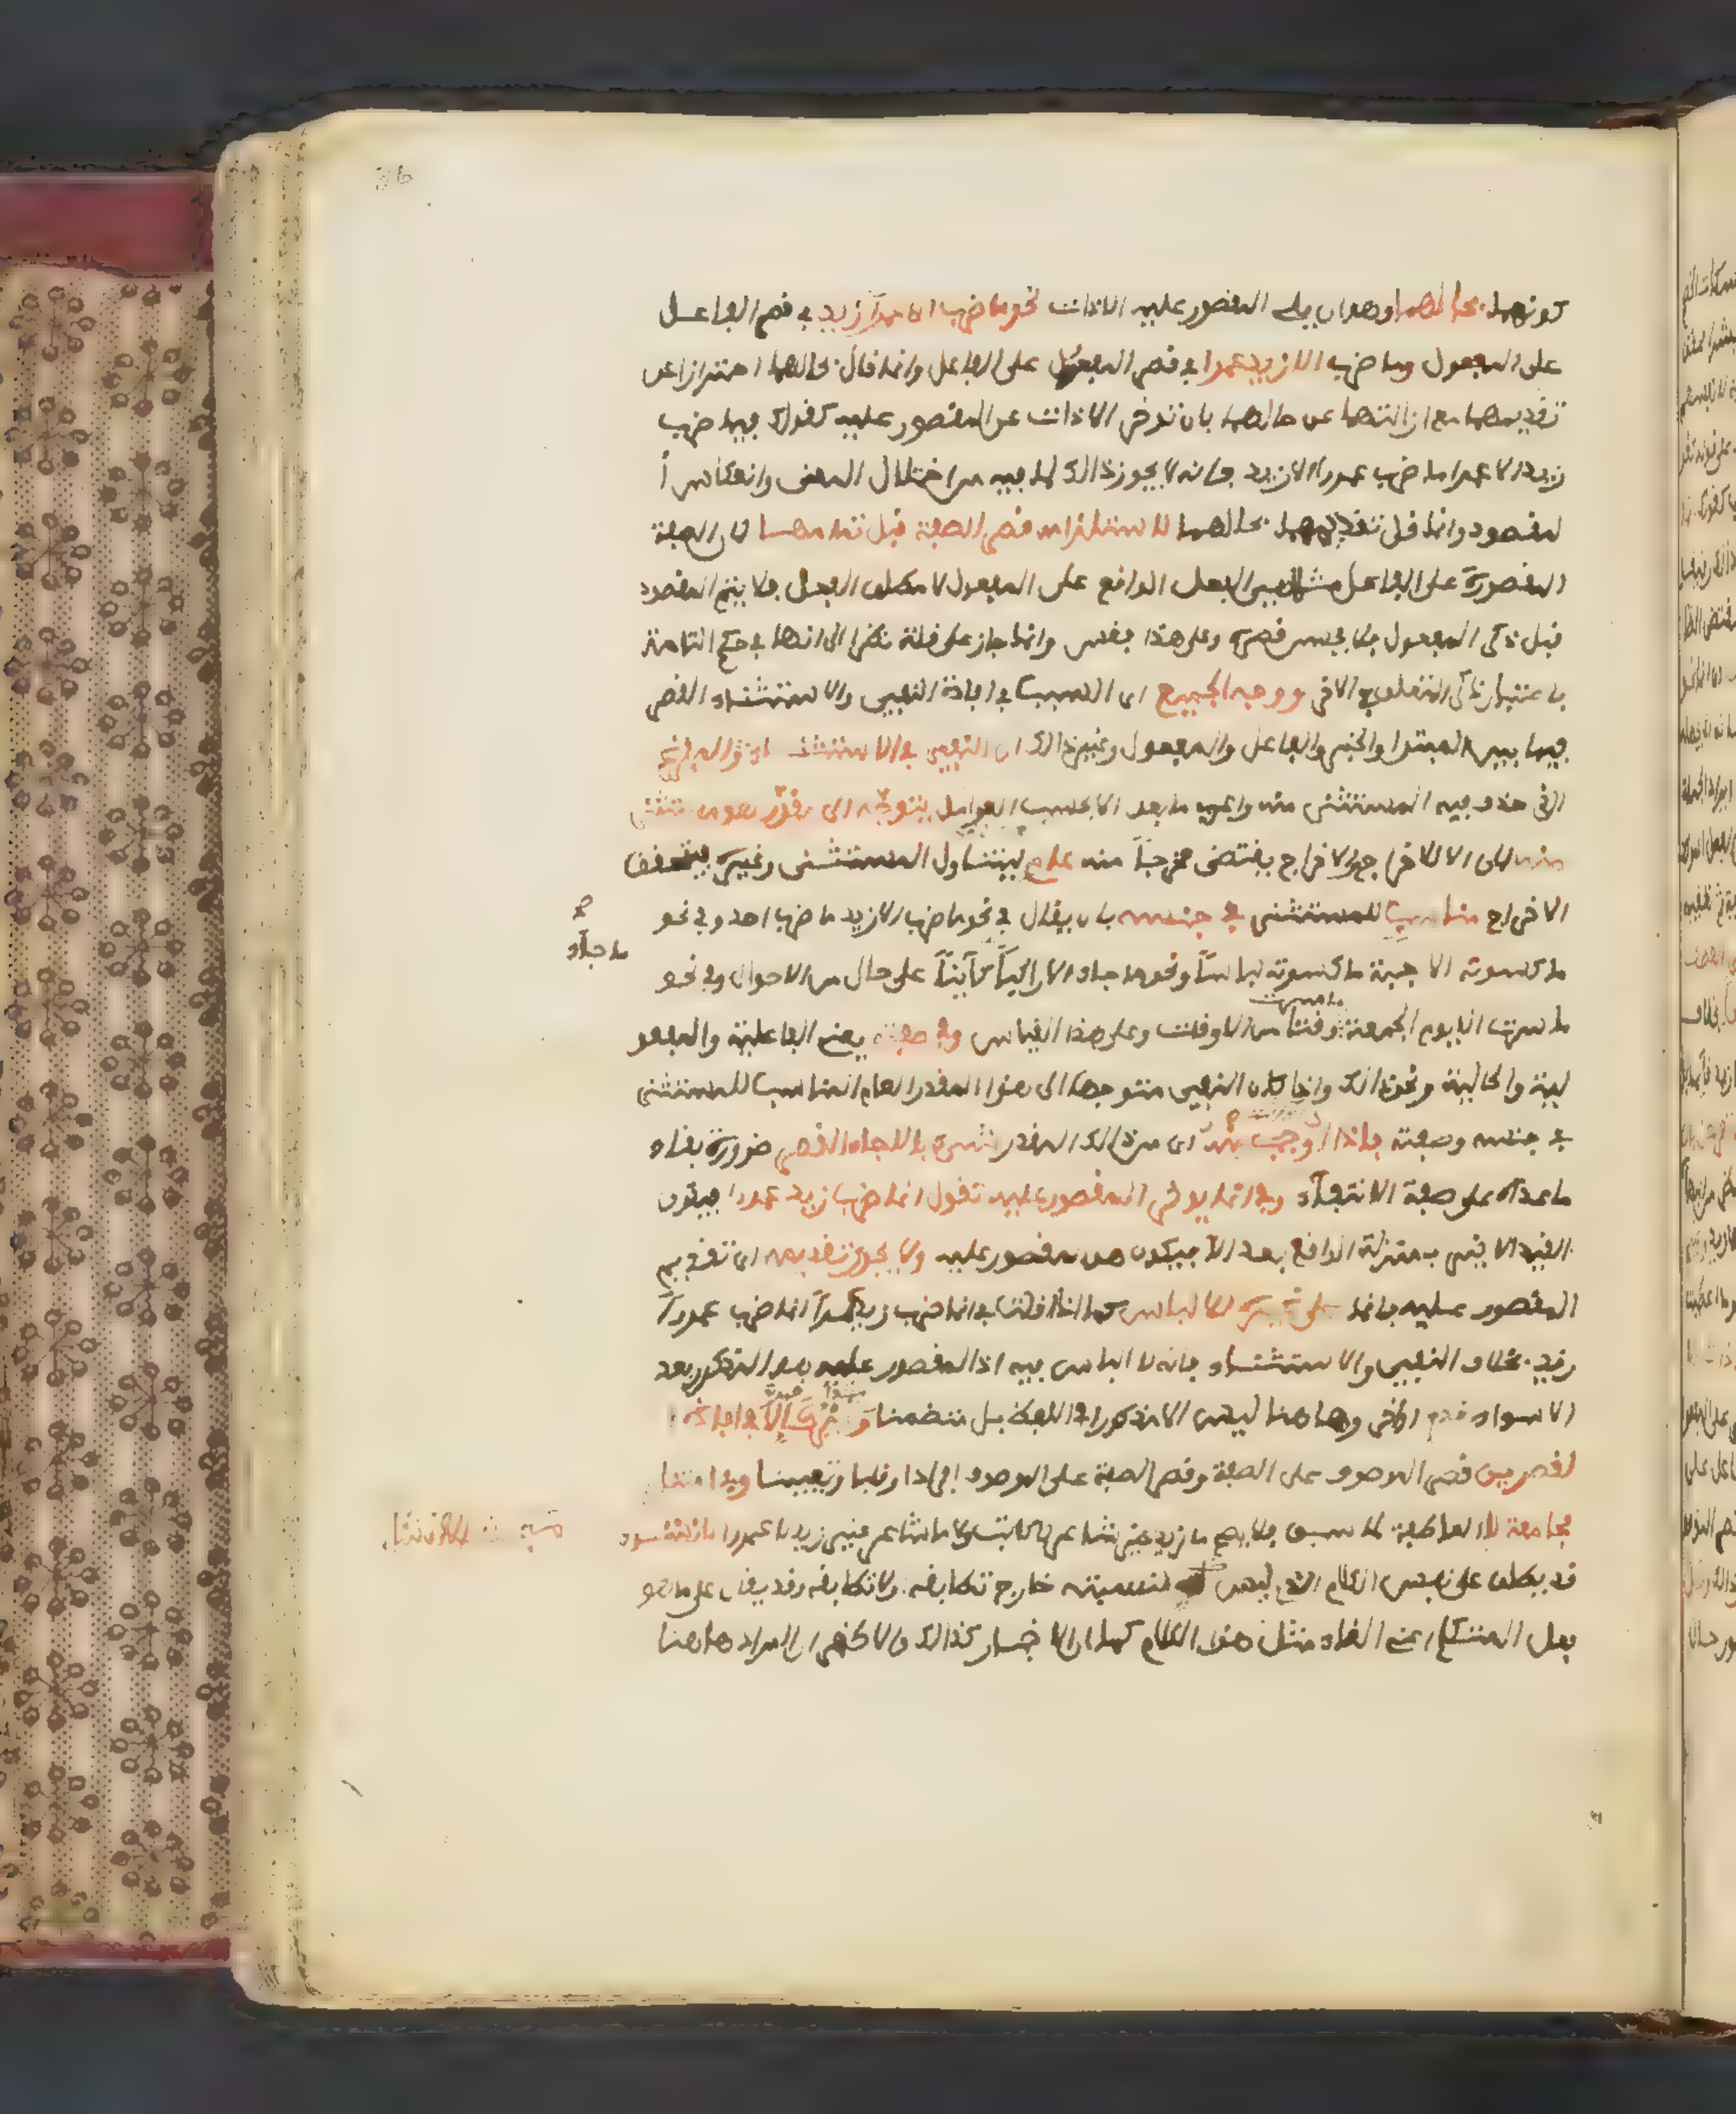 كونهما بحالهما وهو ان يلي المقصور عليه الاداة نحو ما ضرب الا عمرا زيد في قصر الفاعل
على المفعول وما ضرب الا زيد عمرا في قصر المفعول على الفاعل وانما قال بحالهما احترازا عن
تقديمهما مع ازالتهما عن حالهما بان تؤخر الاداة عن المقصور عليه كقولك فيما ضرب
زيد الا عمرا ما ضرب عمرا الا زيد فانه لا يجوز ذالك لما فيه من اختلال المعنى وانعكاس ا
لمقصود وانما قل تقديمهما بحالهما لاستلزامه قصر الصفة قبل تمامها لان الصفة
المقصورة على الفاعل مثلا هي الفعل الواقع على المفعول لا مطلق الفعل فلا يتم المقصود
قبل ذكر المفعول فلا يحسن قصره وعلى هذا فقس وانما جاز على قلة نظرا الى انها في حكم التامة
باعتبار ذكر المتعلق في الاخر ووجه الجميع اى السبب في افادة النفي والاستثناء القصر
فيما بين المبتدا والخبر والفاعل والمفعول وغير ذالك ان النفي في الاستثناء المفرغ
الذي حذف فيه المستثنى منه واعرب ما بعد الا بحسب العوامل يتوجه الى مقدر هو مستثنى
منه لان الا للاخراج والاخراج يقتضى مخرجا منه عام ليتناول المستثنى وغيره فيتحقق
الاخراج مناسب للمستثنى في جنسه بان يقال في نحو ما ضرب الا زيد ما ضرب احد وفي نحو
ما جاء
ما كسوته الا جبة ما كسوته لباسا وفي نحو ما جاء الا راكبا كائنا على حال من الاحوال وفي نحو
ما سرت الا يوم الجمعة ما سرت وقتا من الاوقات وعلى هذا القياس وفي صفته يعنى الفاعلية والمفعو
لية والحالية ونحو ذالك واذا كان النفي متوجها الى هذا المقدر العام المناسب للمستثنى
في جنسه وصفته فاذا اوجب منه اى من ذالك المقدر شيء بالا جاء القصر ضرورة بقاء
ما عداه على صفة الانتفاء وفي انما يؤخر المقصور عليه تقول انما ضرب زيد عمرا فيكون
القيد الاخير بمنزلة الواقع بعد الا فيكون هو المقصور عليه ولا يجوز تقديمه اى تقديم
المقصور عليه بانما على غيره للالباس كما اذا قلنا في انما ضرب زيد عمرا انما ضرب عمرا
زيد بخلاف النفي والاستثناء فانه لا الباس فيه اذ المقصور عليه هو المذكور بعد
الا سواء قدم او اخر وهاهنا ليس الا مذكورا في اللفظ بل متضمنا وغير كالا في افادة ا
لقصرين قصر الموصوف على الصفة وقصر الصفة على الموصوف افرادا وقلبا وتعيينا وفي امتناع
مجامعة لا العاطفة لما سبق فلا يصح ما زيد غير شاعر لا كاتب ولا ما شاعر غير زيد لا عمرو الانشاء
قد يطلق على نفس الكلام الذي ليس لنسبته خارج تطابقه او لا تطابقه وقد يقال على ما هو
فعل المتكلم اعنى القاء مثل هذا الكلام كما ان الاخبار كذالك والاظهر ان المراد هاهنا